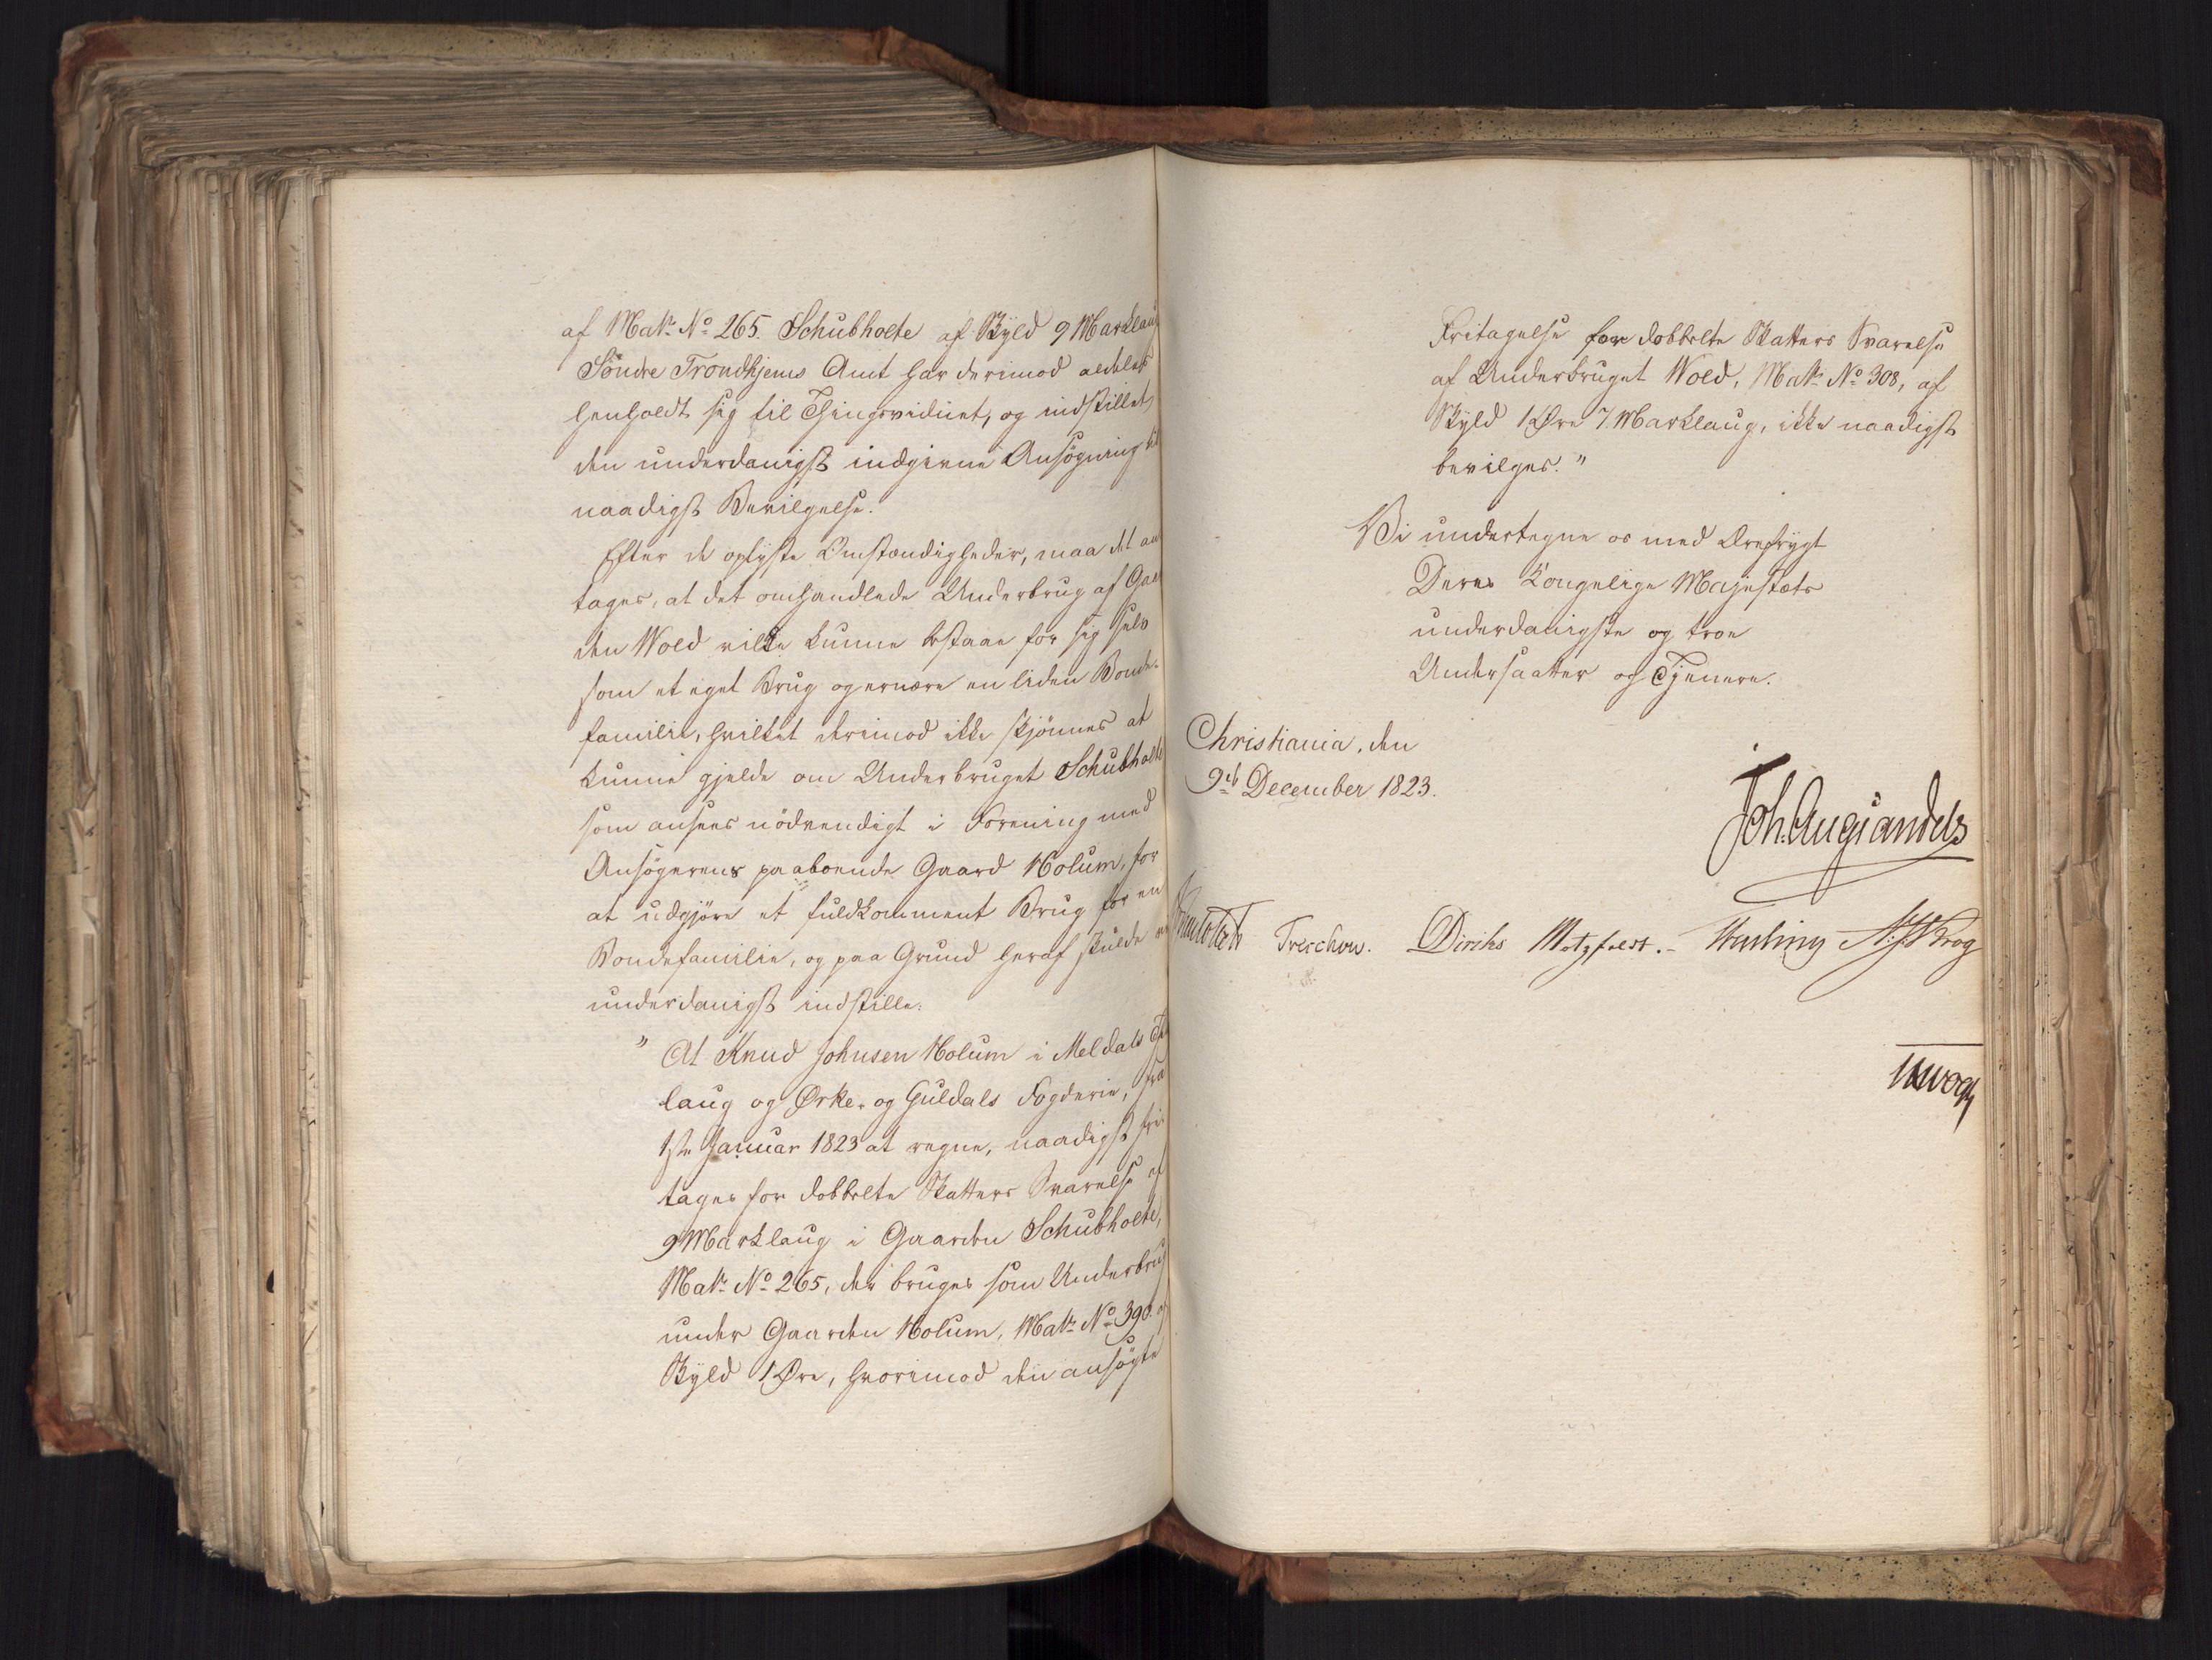 af Matr. No 265. Schubholte af Skyld 9 Marklaug
Söndre Trondhjems Amt har derimod aldeles
henholdt sig til Thingsvidnet, og indstillet
den underdanigst indgivne Ansøgning til
naadigst Bevilgelse.
Efter de oplyste Omstændigheder, maa det an
tages, at det omhandlede Underbrug af Gaar
den Wold vilde kunne bestaae for sig selv
som et eget Brug og ernære en liden Bonde-
familie, hvilket derimod ikke skjönnes at
kunne gjelde om Underbruget Schubholte
som ansees nödvendigt i Forening med
Ansögerens paaboende Gaard Holum, for
at udgjöre et fuldkomment Brug for en
Bondefamilie, og paa Grund heraf skulde vi
underdanigst indstille:
" At Knud Johnsen Holum i Meldals Thing
laug og Ørke- og Guldals Fogderie, fra
1ste Januar 1823 at regne, naadigst fri-
tages for dobbelte Skatters Svarelse af
9 Marklaug i Gaarden Schubholte,
Matr. No 265, der bruges som Underbrug
under Gaarden Holum, Matr. No 390. af
Skyld 1 Øre, hvorimod den ansögte
Fritagelse for dobbelte Skatters Svarelse
af Underbruget Wold, Matr. No 308, af
Skyld 1 Øre 7 Marklaug, ikke naadigst
bevilges."
Vi undertegne os med Ærefrygt
Deres Kongelige Majestæts
underdanigste og troe
Undersaatter og Tjenere.
Christiania, den
9de December 1823.
Joh. Aug Sandels
Treschow. Diriks Motzfeldt. Krog